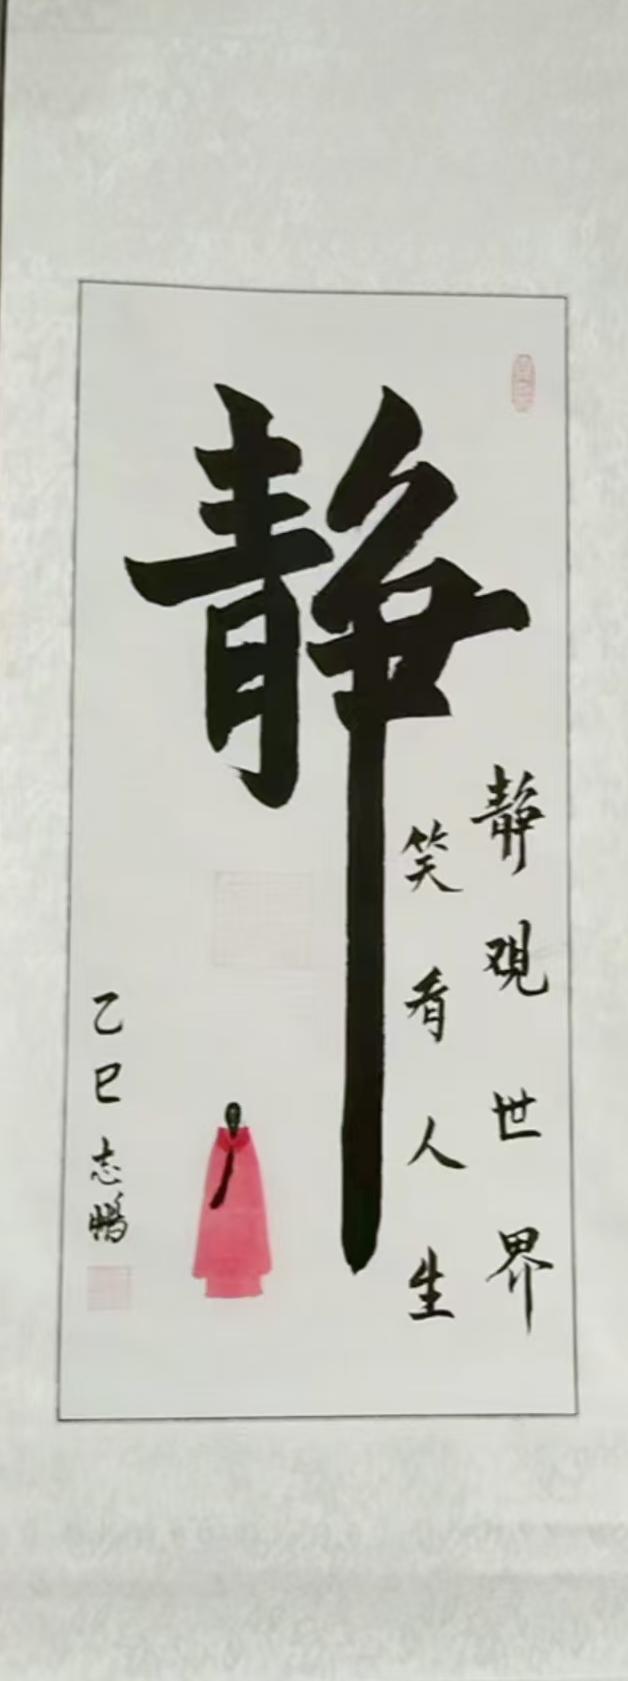 静
静观世界
笑看人生
乙巳 志鹏